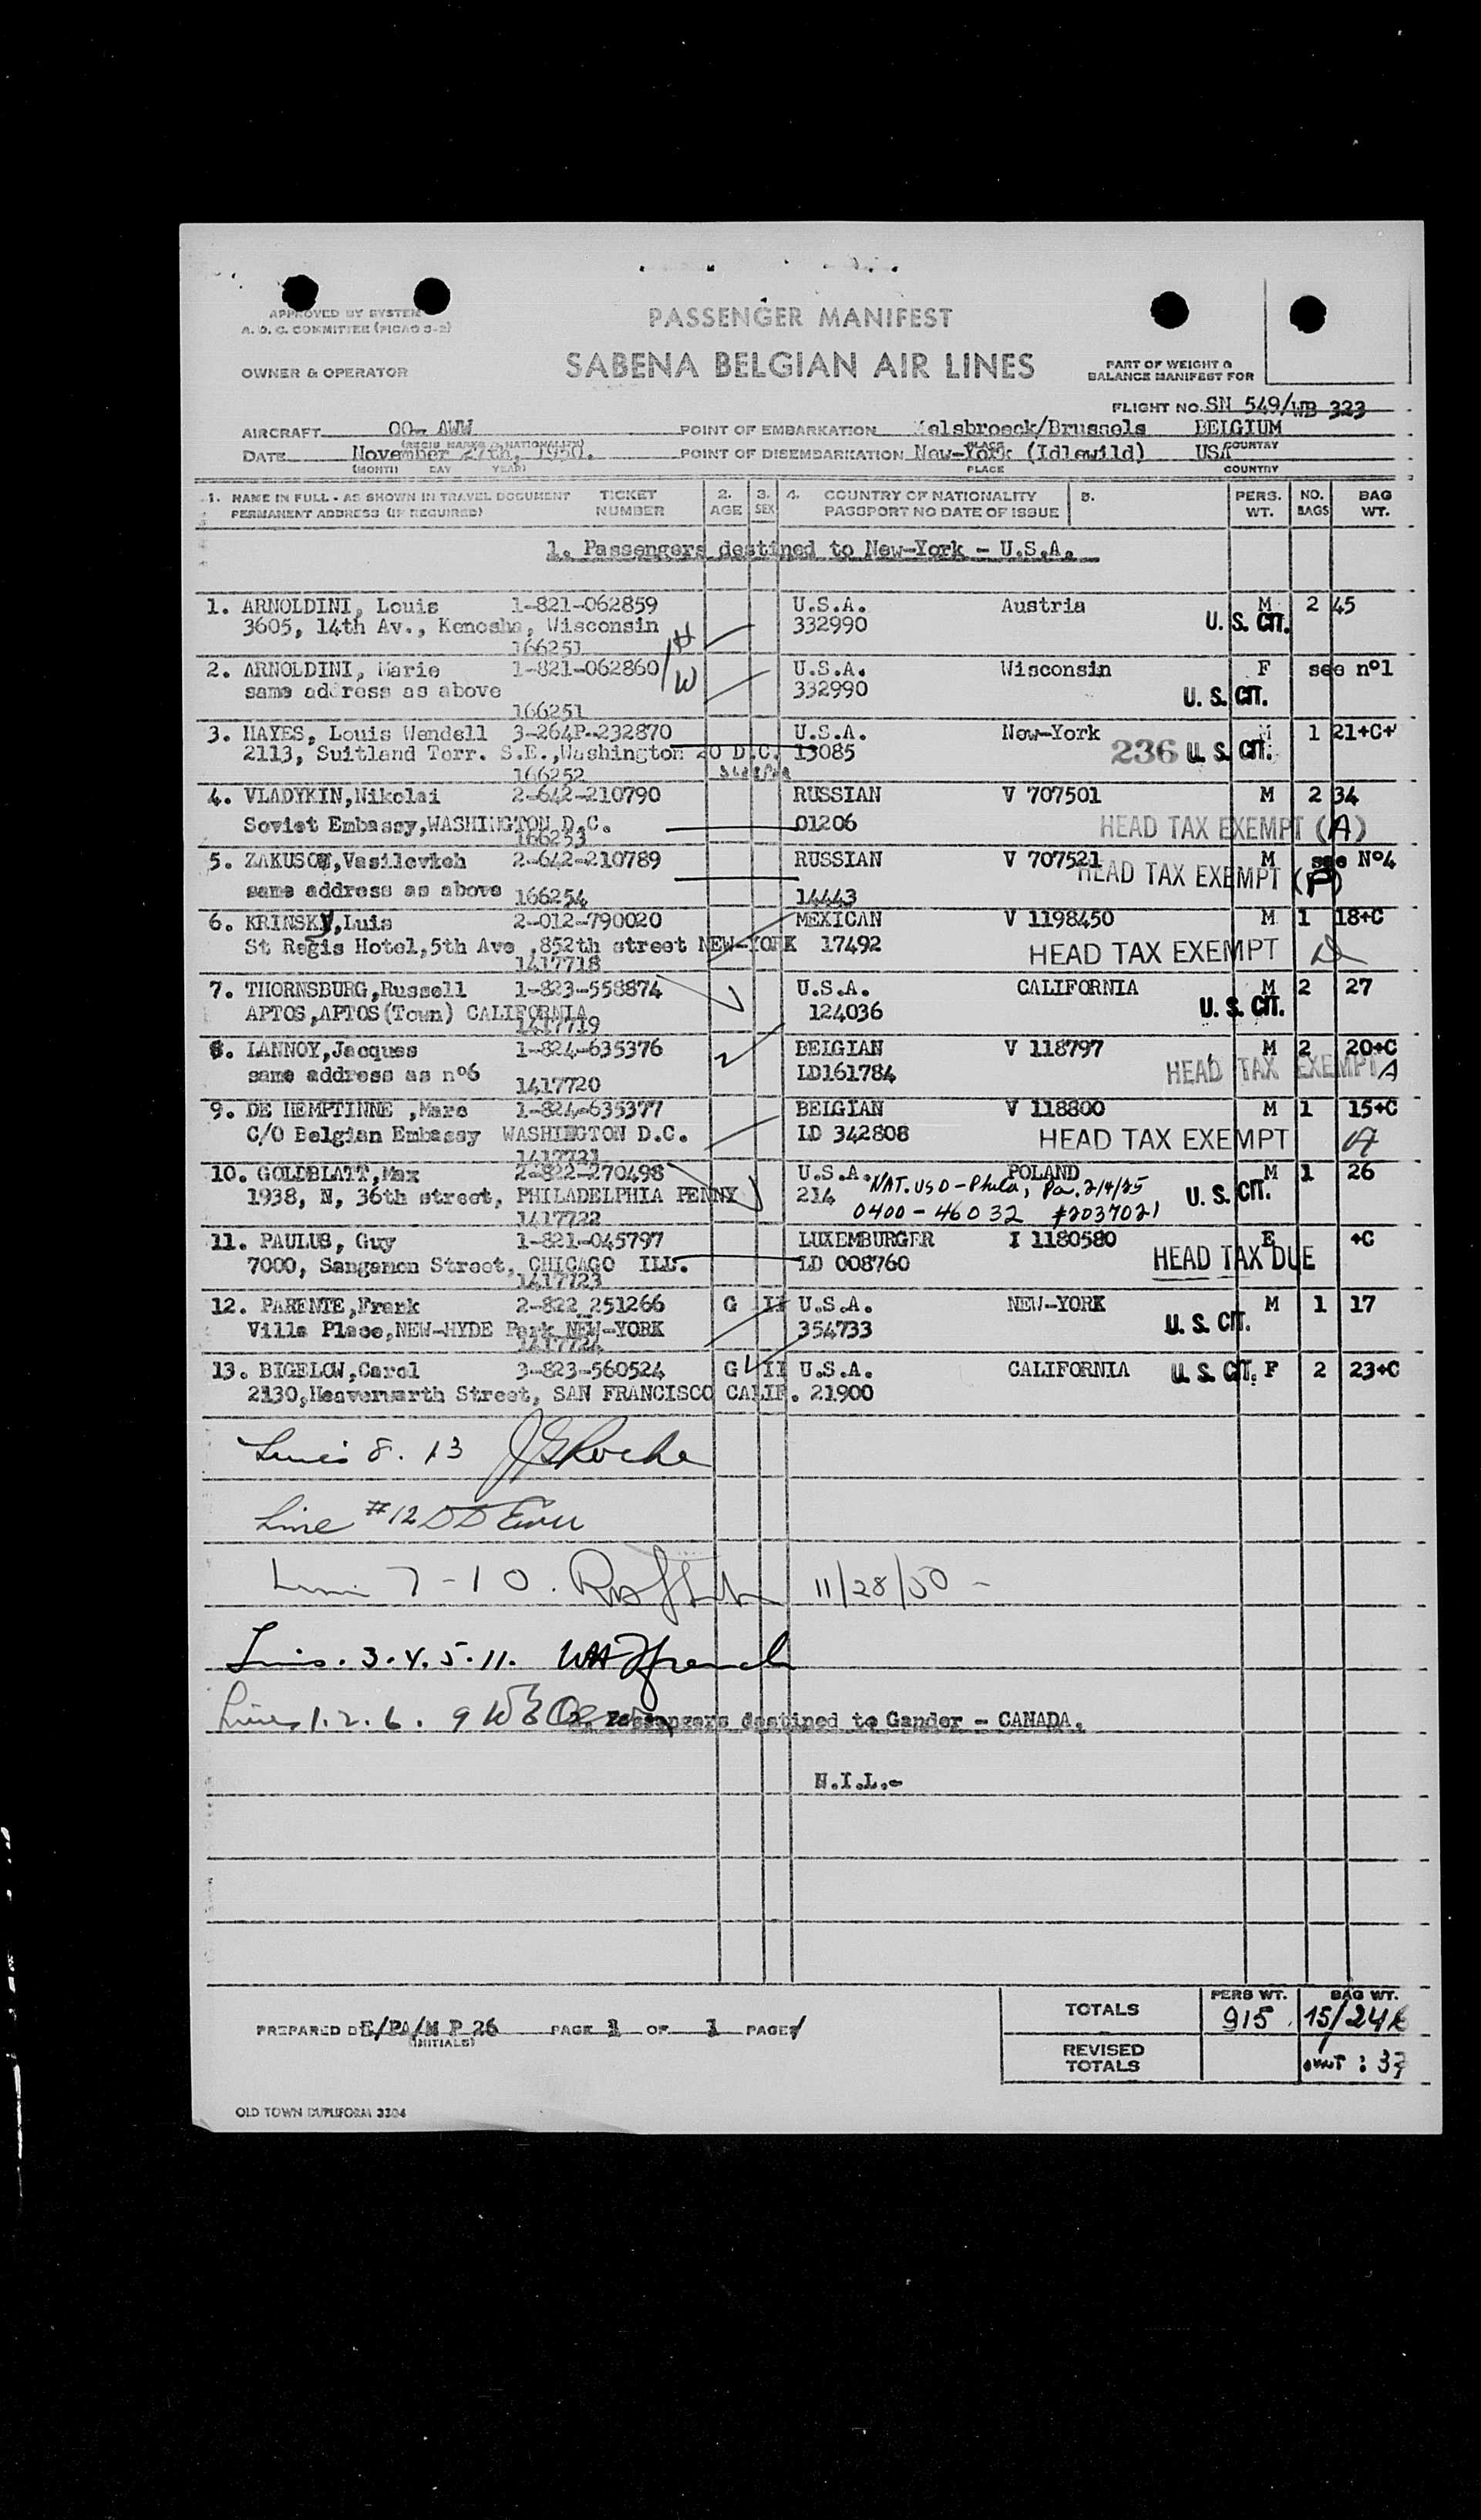 APPROVED BY SYSTEM
A. O. C. COMMITTEE (PICAO S-2)
PASSENGER MANIFEST
OWNER & OPERATOR
SABENA BELGIAN AIR LINES
PART OF WEIGHT &
BALANCE MANIFEST FOR
FLIGHT NO. SN 549/WB 323
AIRCRAFT OO- AWW POINT OF EMBARKATION Melsbroeck/Brussels BELGIUM
(REGIS MARKS & NATIONALITY) PLACE COUNTRY
DATE November 27th, 1950. POINT OF DISEMBARKATION New-York (Idlewild) USA
(MONTH DAY YEAR) PLACE COUNTRY
1. NAME IN FULL - AS SHOWN IN TRAVEL DOCUMENT TICKET 2. 3. 4. COUNTRY OF NATIONALITY 5. PERS. NO. BAG
PERMANENT ADDRESS (IF REQUIRED) NUMBER AGE SEX PASSPORT NO DATE OF ISSUE WT. BAGS WT.
1. Passengers destined to New-York - U.S.A.
1. ARNOLDINI, Louis 1-821-062859 U.S.A. Austria M 2 45
3605, 14th Av., Kenosha, Wisconsin 332990 U. S. CIT.
166251 H
2. ARNOLDINI, Marie 1-821-062860 / W U.S.A. Wisconsin F see n°1
same address as above 332990 U. S. CIT.
166251
3. HAYES, Louis Wendell 3-264P-232870 U.S.A. New-York M 1 21+C+
2113, Suitland Terr. S.E.,Washington 20 D.C. 13085 236 U. S. CIT.
166252
4. VLADYKIN,Nikolai 2-642-210790 RUSSIAN V 707501 M 2 34
Soviet Embassy,WASHINGTON D.C. 01206 HEAD TAX EXEMPT (A)
166253
5. ZAKUSOV,Vasilevich 2-642-210789 RUSSIAN V 707521 M see N°4
HEAD TAX EXEMPT
same address as above 166254 14443
6. KRINSKY,Luis 2-012-790020 MEXICAN V 1198450 M 1 18+C
St Regis Hotel,5th Ave ,852th street NEW-YORK 17492 HEAD TAX EXEMPT
1417718
7. THORNSBURG,Russell 1-823-558874 U.S.A. CALIFORNIA M 2 27
APTOS,APTOS(Town) CALIFORNIA 124036 U. S. CIT.
1417719
8. LANNOY,Jacques 1-824-635376 BELGIAN V 118797 M 2 20+C
same address as n°6 LD161784 HEAD TAX EXEMPT A
1417720
9. DE HEMPTINNE ,Marc 1-824-635377 BELGIAN V 118800 M 1 15+C
C/O Belgian Embassy WASHINGTON D.C. LD 342808 HEAD TAX EXEMPT A
1417721
10. GOLDBLATT,Max 2-822-270498 U.S.A. POLAND M 1 26
NAT. USD-Phila, Pa. 2/4/25
1938, N, 36th street, PHILADELPHIA PENNY 214 U. S. CIT.
1417722 0400-46032 #2037021
11. PAULUS, Guy 1-821-045797 LUXEMBURGER I 1180580 E +C
7000, Sangamon Street, CHICAGO ILL. LD 008760 HEAD TAX DUE
1417723
12. PARENTE,Frank 2-822 251266 G II U.S.A. NEW-YORK M 1 17
Villa Place,NEW-HYDE Park NEW-YORK 354733 U. S. CIT.
1417724
13. BIGELOW,Carol 3-823-560524 G II U.S.A. CALIFORNIA U. S. CIT. F 2 23+C
2130,Heavenwarth Street, SAN FRANCISCO CALIF. 21900
Lines 8. 13 J G Roche
Line #12
Lines 7-10. 11/28/50 -
Lines. 3. 4. 5. 11. WH French
Lines 1. 2. 6. 9
2. Passengers destined to Gander - CANADA.
N.I.L.-
TOTALS PERS WT. 915 BAG WT. 15/246
PREPARED E/PA/M P 26 PAGE 1 OF 1 PAGES
(INITIALS)
REVISED
TOTALS
OLD TOWN DUPLIFORM 3304